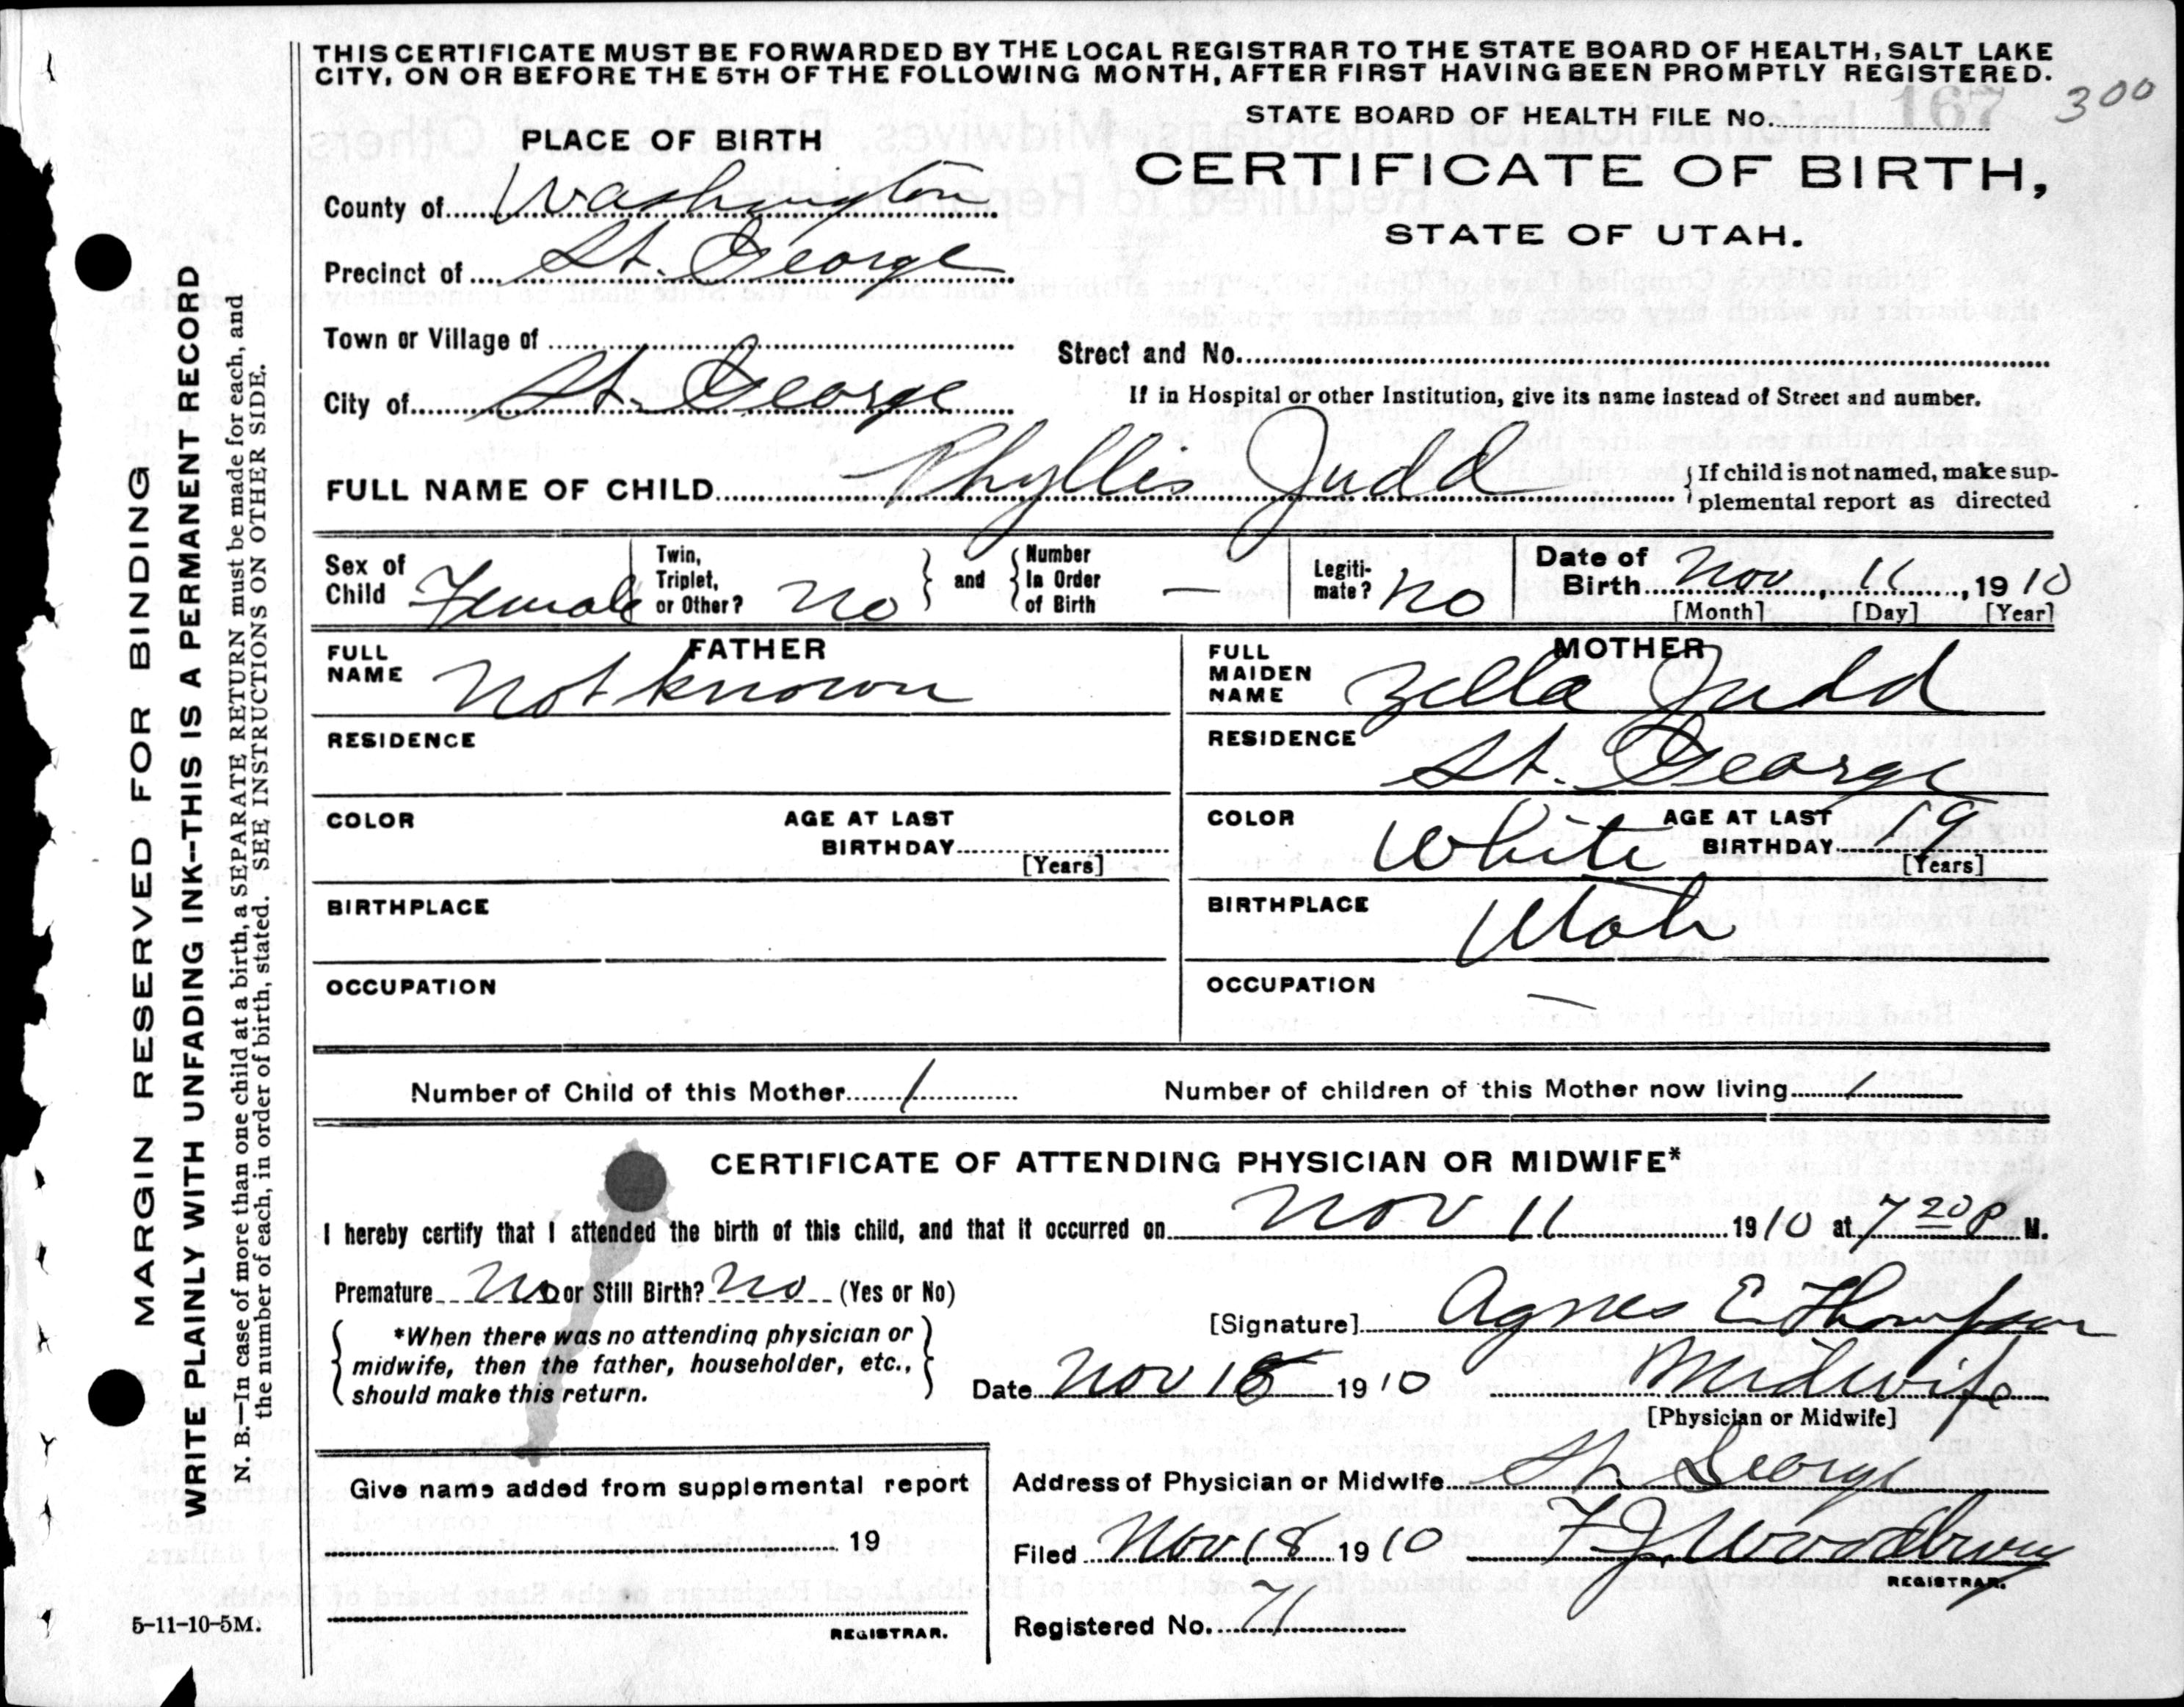 THIS CERTIFICATE MUST BE FORWARDED BY THE LOCAL REGISTRAR TO THE STATE BOARD OF HEALTH, SALT LAKE
CITY, ON OR BEFORE THE 5TH OF THE FOLLOWING MONTH, AFTER FIRST HAVING BEEN PROMPTLY REGISTERED.
STATE BOARD OF HEALTH FILE No. 167 300
PLACE OF BIRTH
CERTIFICATE OF BIRTH,
STATE OF UTAH.
County of Washington
Precinct of St. George
Town or Village of
Street and No.
City of St. George
If in Hospital or other Institution, give its name instead of Street and number.
FULL NAME OF CHILD Phyllis Judd
If child is not named, make sup-
plemental report as directed
Sex of Child Female
Twin, Triplet, or Other? No
and
Number In Order of Birth —
Legiti-mate? No
Date of Birth Nov. 11, 1910
[Month] [Day] [Year]
FATHER
FULL NAME Not known
RESIDENCE
COLOR
AGE AT LAST BIRTHDAY
[Years]
BIRTHPLACE
OCCUPATION
MOTHER
FULL MAIDEN NAME Zella Judd
RESIDENCE St. George
COLOR White
AGE AT LAST BIRTHDAY 19
[Years]
BIRTHPLACE Utah
OCCUPATION —
Number of Child of this Mother 1
Number of children of this Mother now living 1
CERTIFICATE OF ATTENDING PHYSICIAN OR MIDWIFE*
I hereby certify that I attended the birth of this child, and that it occurred on Nov 11 1910 at 7 20 P M.
Premature No or Still Birth? No (Yes or No)
*When there was no attending physician or
midwife, then the father, householder, etc.,
should make this return.
[Signature] Agnes E Thompson
Date Nov 18 1910 Midwife
[Physician or Midwife]
Give name added from supplemental report
19
REGISTRAR.
Address of Physician or Midwife St. George
Filed Nov 18 1910 F J Woodbury
REGISTRAR.
Registered No. 71
5-11-10-5M.
MARGIN RESERVED FOR BINDING
WRITE PLAINLY WITH UNFADING INK--THIS IS A PERMANENT RECORD
N. B.—In case of more than one child at a birth, a SEPARATE RETURN must be made for each, and
the number of each, in order of birth, stated. SEE INSTRUCTIONS ON OTHER SIDE.